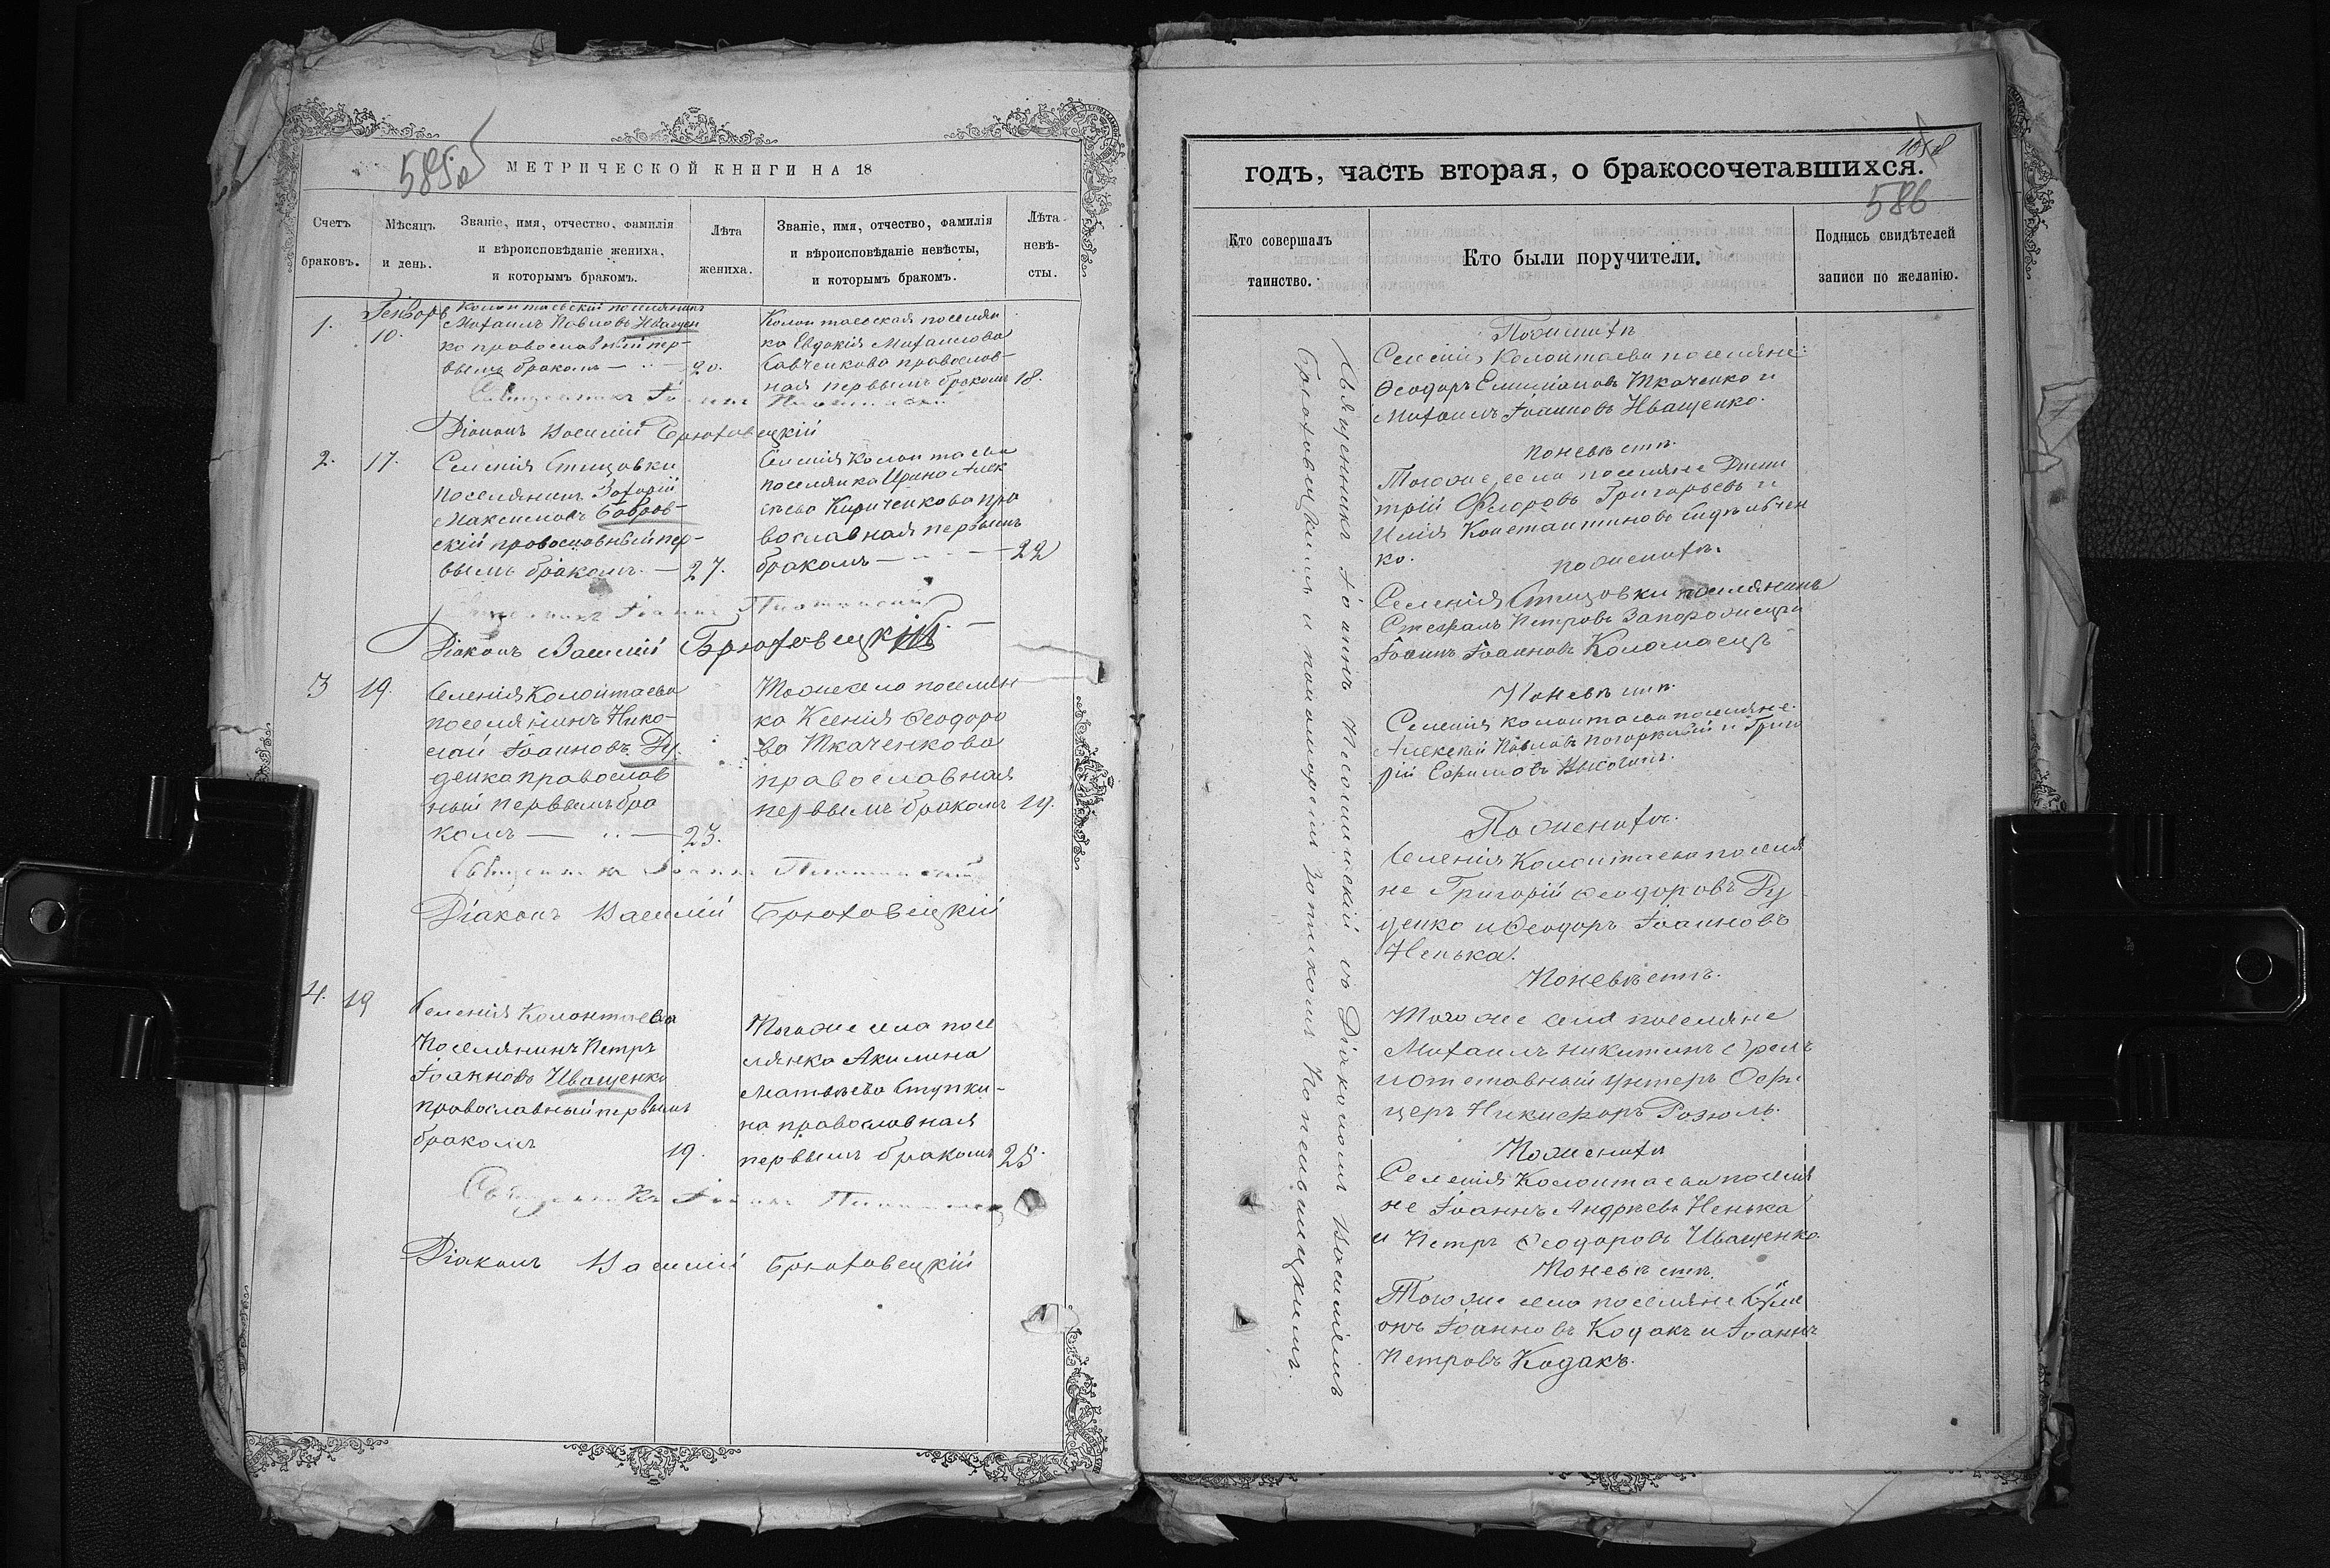 585об
МЕТРИЧЕСКОЙ КНИГИ НА 18
Счетъ
браковъ.
Мѣсяцъ
и день.
Званіе, имя, отчество, фамилія
и вѣроисповѣданіе жениха,
и которымъ бракомъ.
Лѣта
жениха.
Званіе, имя, отчество, фамилія
и вѣроисповѣданіе невѣсты,
и которымъ бракомъ.
Лѣта
невѣ-
сты.
1.
Генворь
10.
Колонтаевскій поселянинъ
Михаилъ Павловъ Иващен
ко православный пер-
вымъ бракомъ
20.
Колонтаевская поселян
ка Евдокія Михаилова
Савченкова православ-
ная первымъ бракомъ
18.
Священникъ Іоаннъ
Діаконъ Василій Брюховецкій
2.
17.
Селенія Стицовки
поселянинъ Захарій
Максимовъ Бобров-
скій православный пер-
вымъ бракомъ.
27.
Селенія Колонтаева
поселянка Ирина Алек
сѣева Кириченкова пра
вославная первымъ
бракомъ
22
Священникъ Іоаннъ
Діаконъ Василій Брюховецкій
3
19.
Селенія Колонтаева
поселянинъ Нико-
лай Іоанновъ Ду
денко православ
ный первымъ бра
комъ
23.
Тогоже села поселян
ка Ксенія Феодоро
ва Ткаченкова
православная
первымъ бракомъ
19.
Священникъ Іоаннъ
Діаконъ Василій Брюховецкій
4.
19
Селенія Колонтаева
Поселянинъ Петръ
Іоанновъ Иващенко
православный первымъ
бракомъ
19.
Тогоже села посе
лянка Акилина
Матвѣева Ступки-
на православная
первымъ бракомъ
25.
Священникъ Іоаннъ
Діаконъ Василій Брюховецкій
годъ, часть вторая, о бракосочетавшихся.
586
Кто совершалъ
таинство.
Кто были поручители.
Подпись свидѣтелей
записи по желанію.
Священникъ Іоаннъ съ Діакономъ Василіемъ
Брюховецкимъ и пономаремъ
По женихѣ
Селенія Колонтаева поселяне:
Феодоръ Емиліановъ Ткаченко и
Михаилъ Іоанновъ Иващенко.
по невѣстѣ.
Тогоже села поселяне Дими
трій Федоровъ Григорьевъ и
Илія Константиновъ
ко.
по женихѣ.
Селенія Стицовки поселянинъ
Стефанъ Петровъ Запорожецъ и
Іоаннъ Іоанновъ Коломаецъ
По невѣстѣ.
Селенія Колонтаева поселяне
Алексѣй Павловъ и Григо
рій Ефимовъ
По женихѣ.
Селенія Колонтаева поселя
не Григорій Феодоровъ Ду
денко и Феодоръ Іоанновъ
Ненька.
По невѣстѣ.
Того же села поселяне
Михаилъ Никитинъ
и отставный унтеръ Офи
церъ Никифоръ Розюль.
По женихѣ
Селенія Колонтаева поселя
не Іоаннъ Андрѣевъ Ненька
и Петръ Феодоровъ Иващенко.
По невѣстѣ.
Того же села поселяне Симе
онъ Іоанновъ Кодакъ и Іоаннъ
Петровъ Кодакъ.